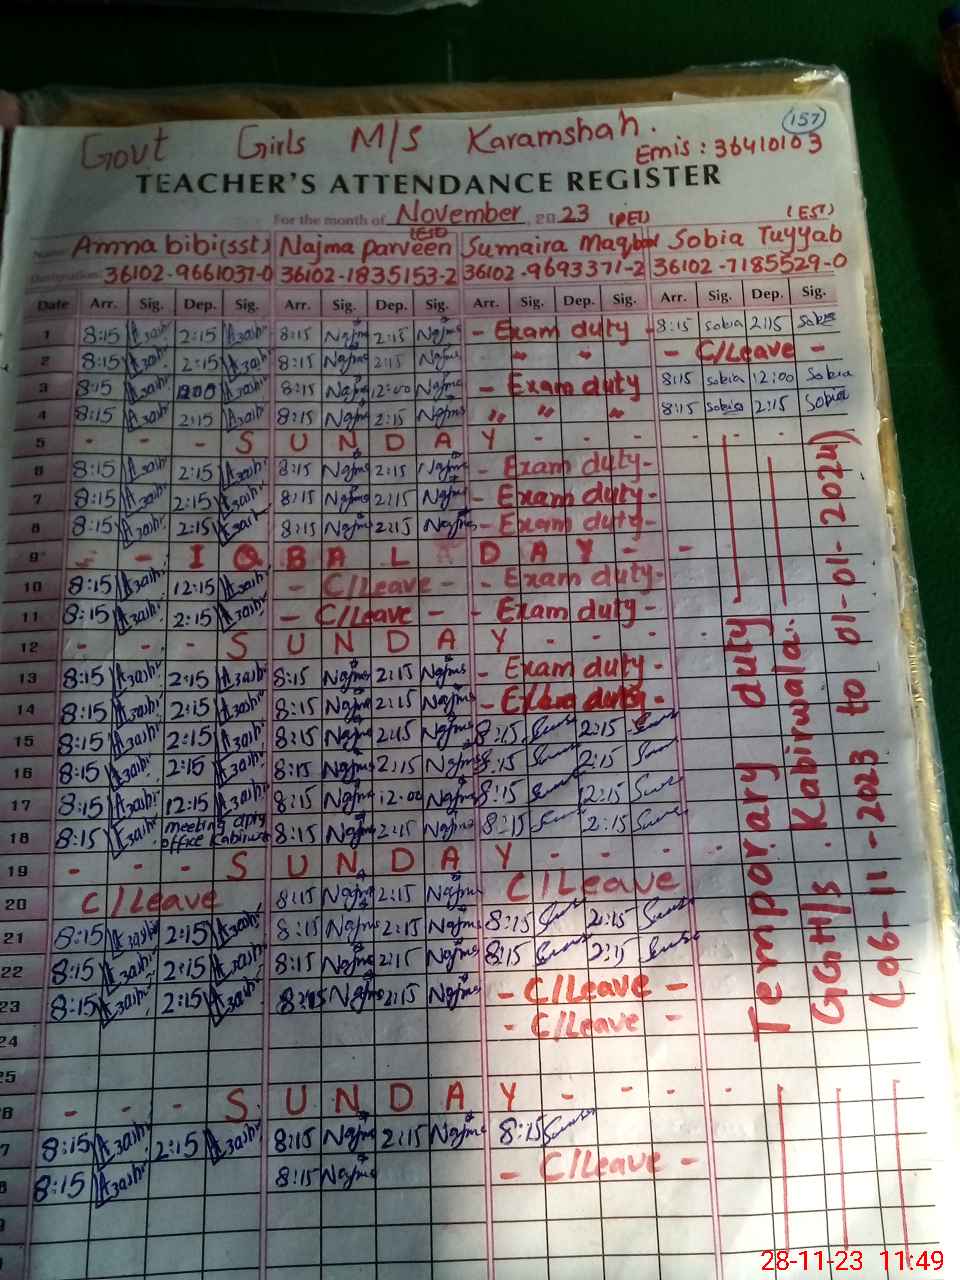 157
Govt Girls M/S Karamshah.
Emis : 36410103
TEACHER'S ATTENDANCE REGISTER
For the month of November 2023 (PET) (EST)
Name Amna bibi (SST) Najma parveen Sumaira Maqbool Sobia Tuyyab
Designation 36102-9661037-0 36102-1835153-2 36102-9693371-2 36102-7185529-0
Date Arr. Sig. Dep. Sig. Arr. Sig. Dep. Sig. Arr. Sig. Dep. Sig. Arr. Sig. Dep. Sig.
1 8:15 2:15 8:15 Najma 2:15 Najma - Exam duty - 8:15 sobia 2:15 Sobia
2 8:15 2:15 8:15 Najma 2:15 Najma " " - C/Leave -
3 8:15 12:00 8:15 Najma 12:00 Najma - Exam duty 8:15 sobia 12:00 Sobia
4 8:15 2:15 8:15 Najma 2:15 Najma " " " 8:15 Sobia 2:15 Sobia
5 - - - S U N D A Y - - - - - -
6 8:15 2:15 8:15 Najma 2:15 Najma - Exam duty -
7 8:15 2:15 8:15 Najma 2:15 Najma - Exam duty -
8 8:15 2:15 8:15 Najma 2:15 Najma - Exam duty -
9 - - I Q B A L D A Y - -
10 8:15 12:15 - C/Leave - - Exam duty -
11 8:15 2:15 - C/Leave - - Exam duty -
12 - - - S U N D A Y - - - -
13 8:15 2:15 8:15 Najma 2:15 Najma - Exam duty -
14 8:15 2:15 8:15 Najma 2:15 Najma - Exam duty -
15 8:15 2:15 8:15 Najma 2:15 Najma 8:15 2:15
16 8:15 2:15 8:15 Najma 2:15 Najma 8:15 2:15
17 8:15 12:15 8:15 Najma 12:00 Najma 8:15 12:15
18 8:15 meeting dpty office Kabirwala 8:15 Najma 2:15 Najma 8:15 2:15
19 - - - S U N D A Y - - - -
20 C/Leave 8:15 Najma 2:15 Najma C/Leave
21 8:15 2:15 8:15 Najma 2:15 Najma 8:15 2:15
22 8:15 2:15 8:15 Najma 2:15 Najma 8:15 2:15
23 8:15 2:15 8:15 Najma 2:15 Najma - C/Leave -
24 - C/Leave -
25
26 - - - S U N D A Y - - - -
27 8:15 2:15 8:15 Najma 2:15 Najma 8:15
28 8:15 8:15 Najma - C/Leave -
Temporary duty
GGH/S Kabirwala.
(06-11-2023 to 01-01-2024)
28-11-23 11:49